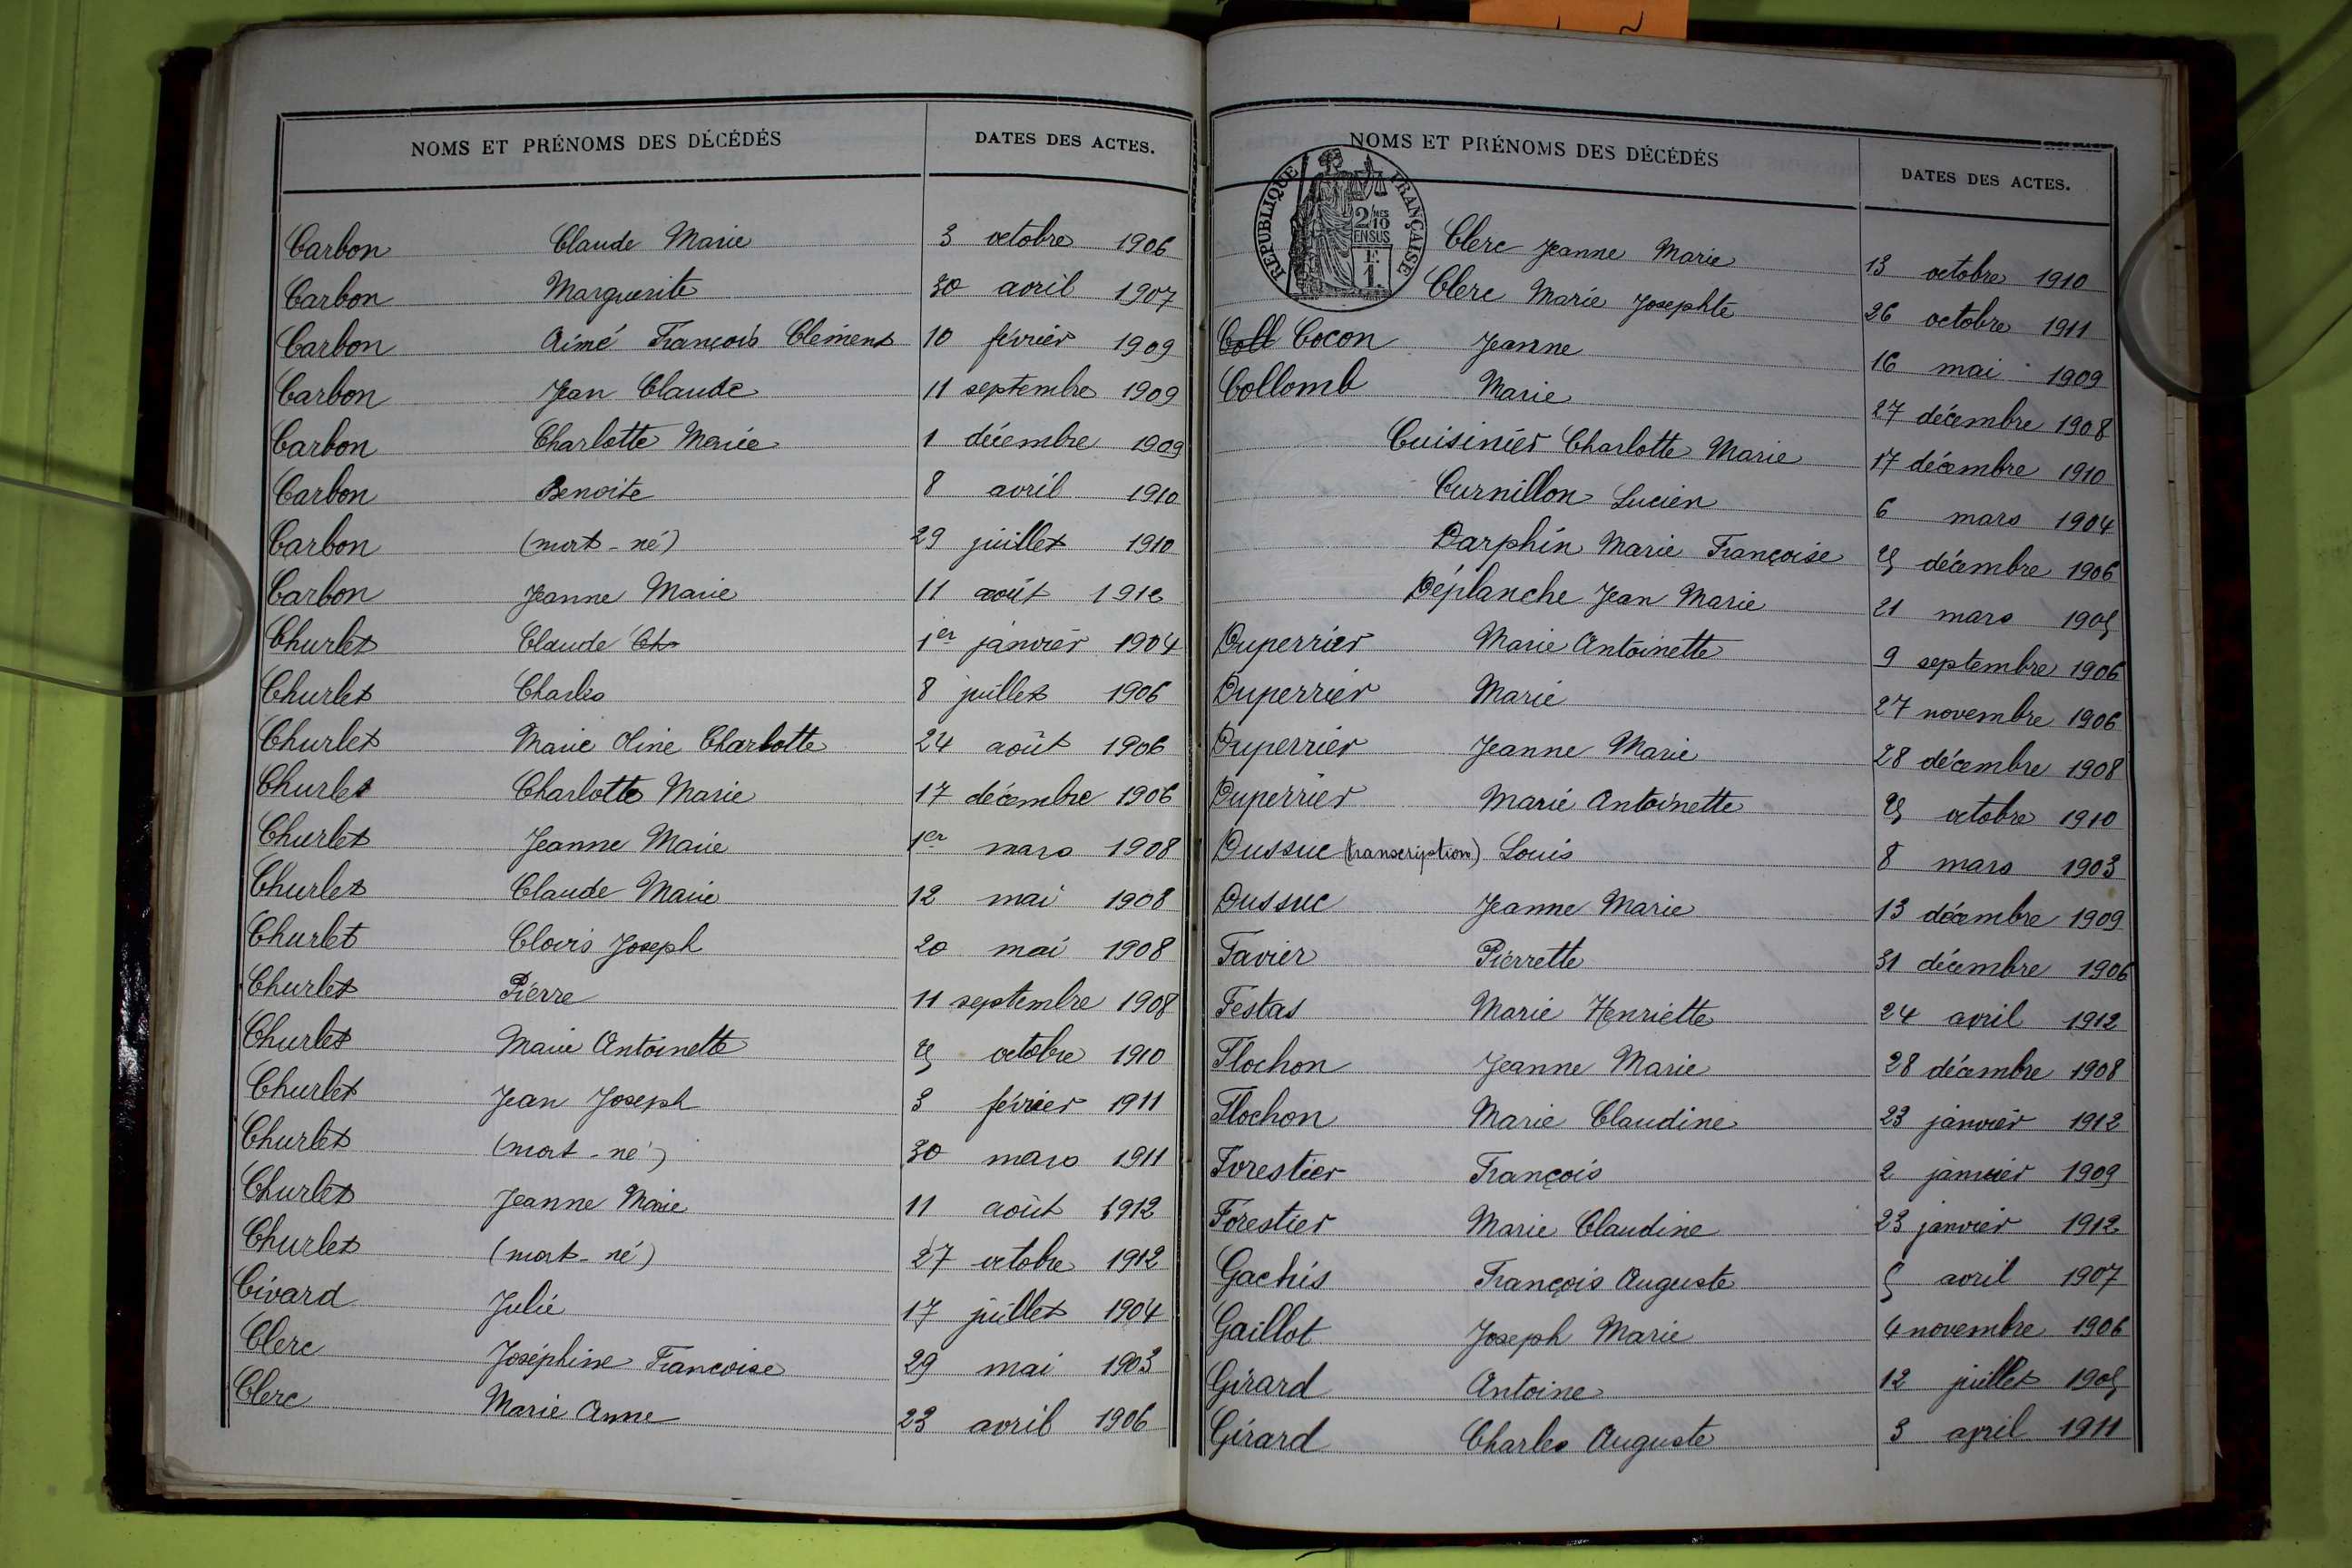 NOMS ET PRÉNOMS DES DÉCÉDÉS DATES DES ACTES.
Carbon Claude Marie 3 octobre 1906
Carbon Marguerite 30 avril 1907
Carbon Aimé François Clément 10 février 1909
Carbon Jean Claude 11 septembre 1909
Carbon Charlotte Marie 1 décembre 1909
Carbon Benoite 8 avril 1910
Carbon (mort-né) 29 juillet 1910
Carbon Jeanne Marie 11 août 1912
Churlet Claude Ch 1er janvier 1904
Churlet Charles 8 juillet 1906
Churlet Marie Oline Charlotte 24 août 1906
Churlet Charlotte Marie 17 décembre 1906
Churlet Jeanne Marie 1er mars 1908
Churlet Claude Marie 12 mai 1908
Churlet Clovis Joseph 20 mai 1908
Churlet Pierre 11 septembre 1908
Churlet Marie Antoinette 25 octobre 1910
Churlet Jean Joseph 3 février 1911
Churlet (mort-né) 30 mars 1911
Churlet Jeanne Marie 11 août 1912
Churlet (mort-né) 27 octobre 1912
Civard Julie 17 juillet 1904
Clerc Joséphine Françoise 29 mai 1903
Clerc Marie Anne 23 avril 1906
NOMS ET PRÉNOMS DES DÉCÉDÉS DATES DES ACTES.
RÉPUBLIQUE FRANÇAISE
2/10MES
EN SUS
F.
1.
Clerc Jeanne Marie 13 octobre 1910
Clerc Marie Josephte 26 octobre 1911
Coll Cocon Jeanne 16 mai 1909
Collomb Marie 27 décembre 1908
Cuisinier Charlotte Marie 17 décembre 1910
Curnillon Lucien 6 mars 1904
Darphin Marie Françoise 25 décembre 1906
Déplanche Jean Marie 21 mars 1905
Duperrier Marie Antoinette 9 septembre 1906
Duperrier Marie 27 novembre 1906
Duperrier Jeanne Marie 28 décembre 1908
Duperrier Marie Antoinette 25 octobre 1910
Dussuc (transcription) Louis 8 mars 1903
Dussuc Jeanne Marie 13 décembre 1909
Favier Pierrette 31 décembre 1906
Festas Marie Henriette 24 avril 1912
Flochon Jeanne Marie 28 décembre 1908
Flochon Marie Claudine 23 janvier 1912
Forestier François 2 janvier 1909
Forestier Marie Claudine 23 janvier 1912
Gachis François Auguste 5 avril 1907
Gaillot Joseph Marie 4 novembre 1906
Girard Antoine 12 juillet 1905
Girard Charles Auguste 3 april 1911